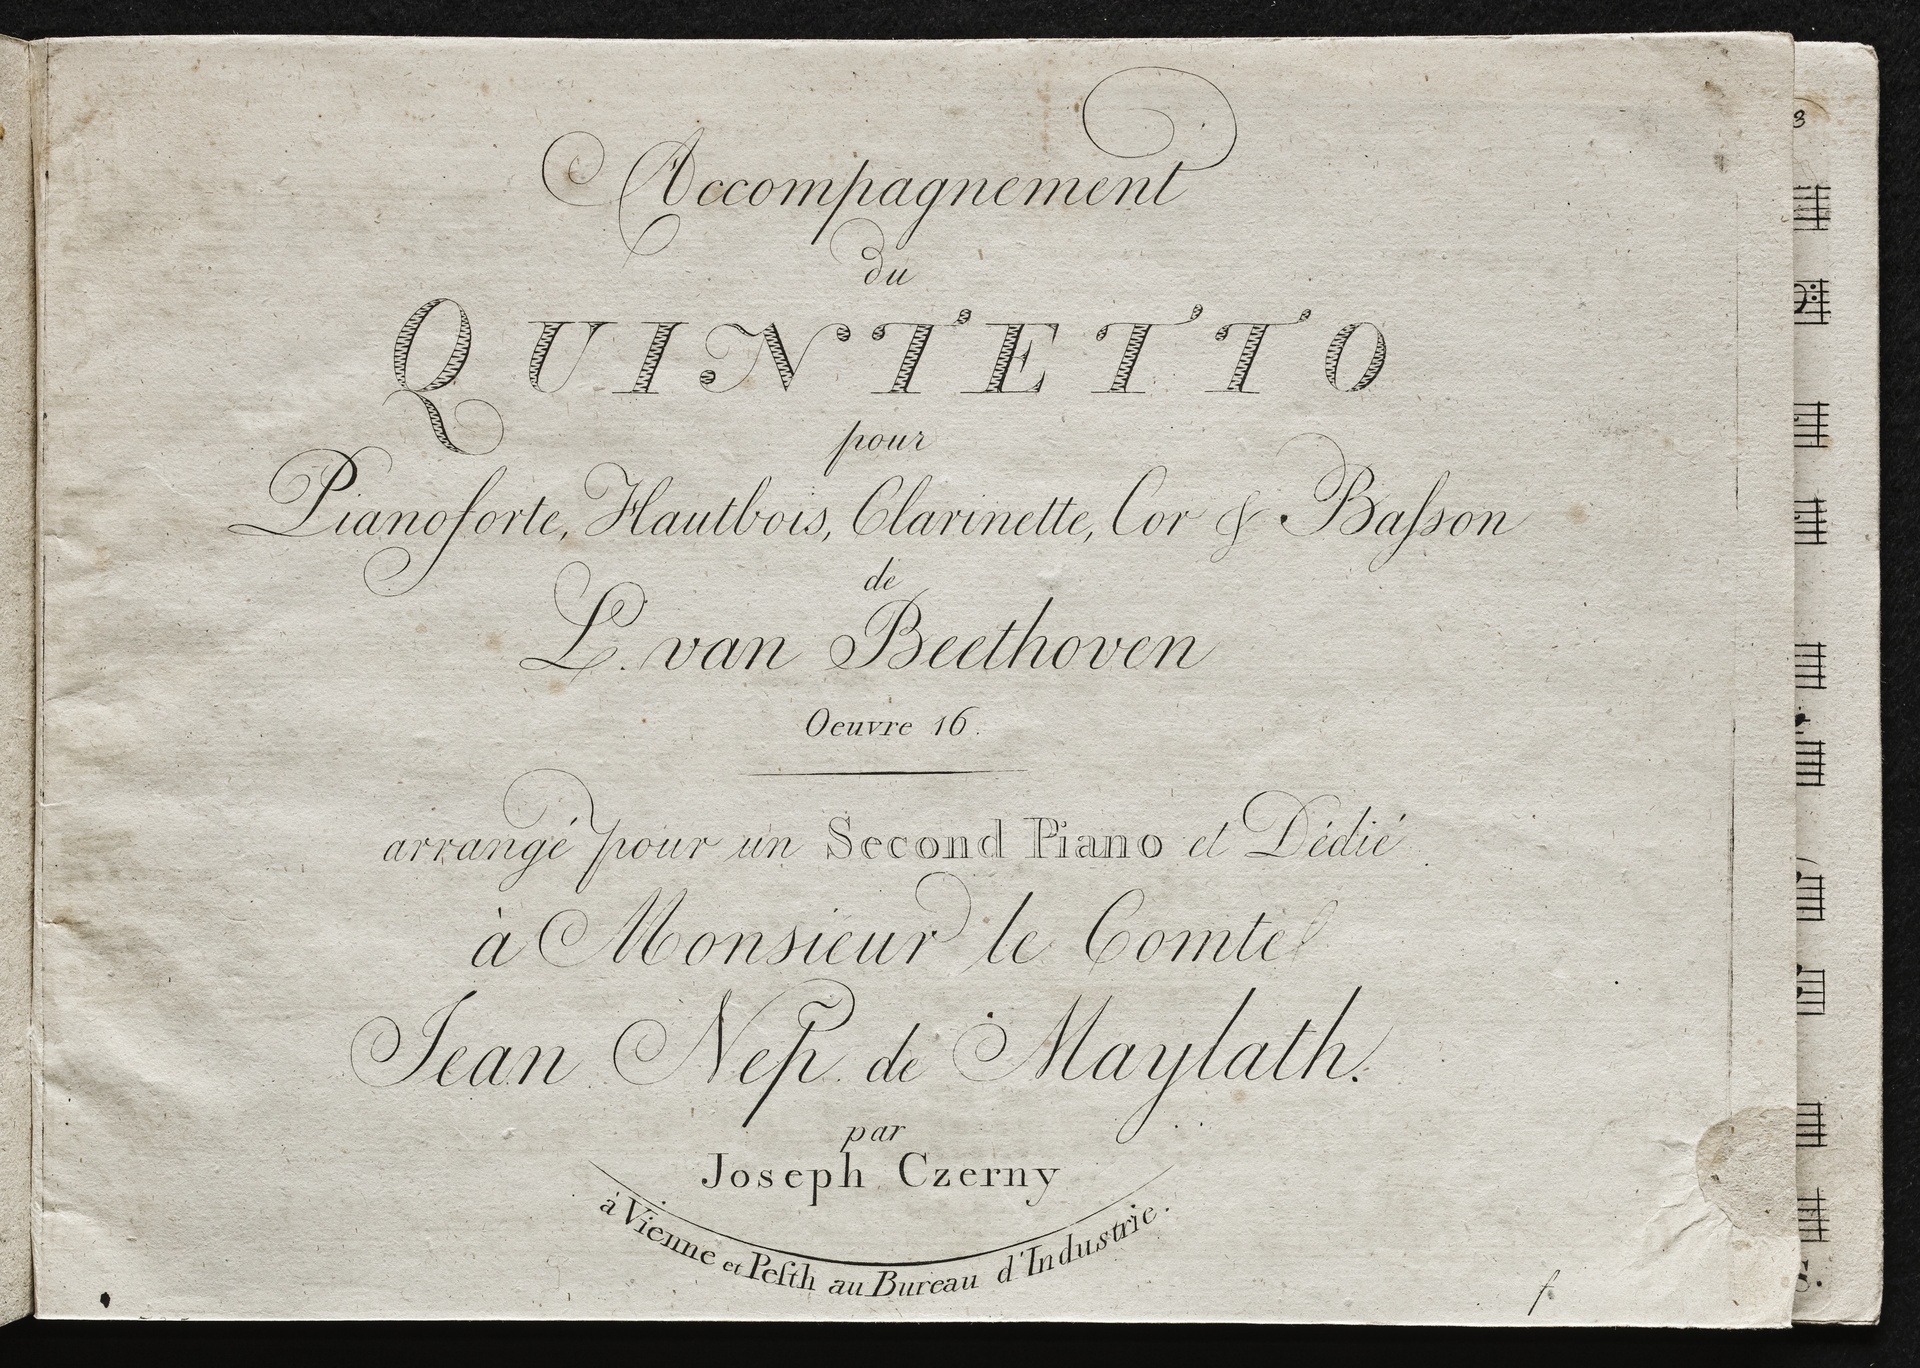 Accompagnement
du
QUINTETTO
pour
Pianoforte, Hautbois, Clarinette, Cor & Baſson
de
L. van Beethoven
Oeuvre 16.
arrangé pour un Second Piano et Dédié
à Monsieur le Comte
Jean Nep. de Maylath.
par
Joseph Czerny
à Vienne et Peſth au Bureau d'Industrie.
f
3